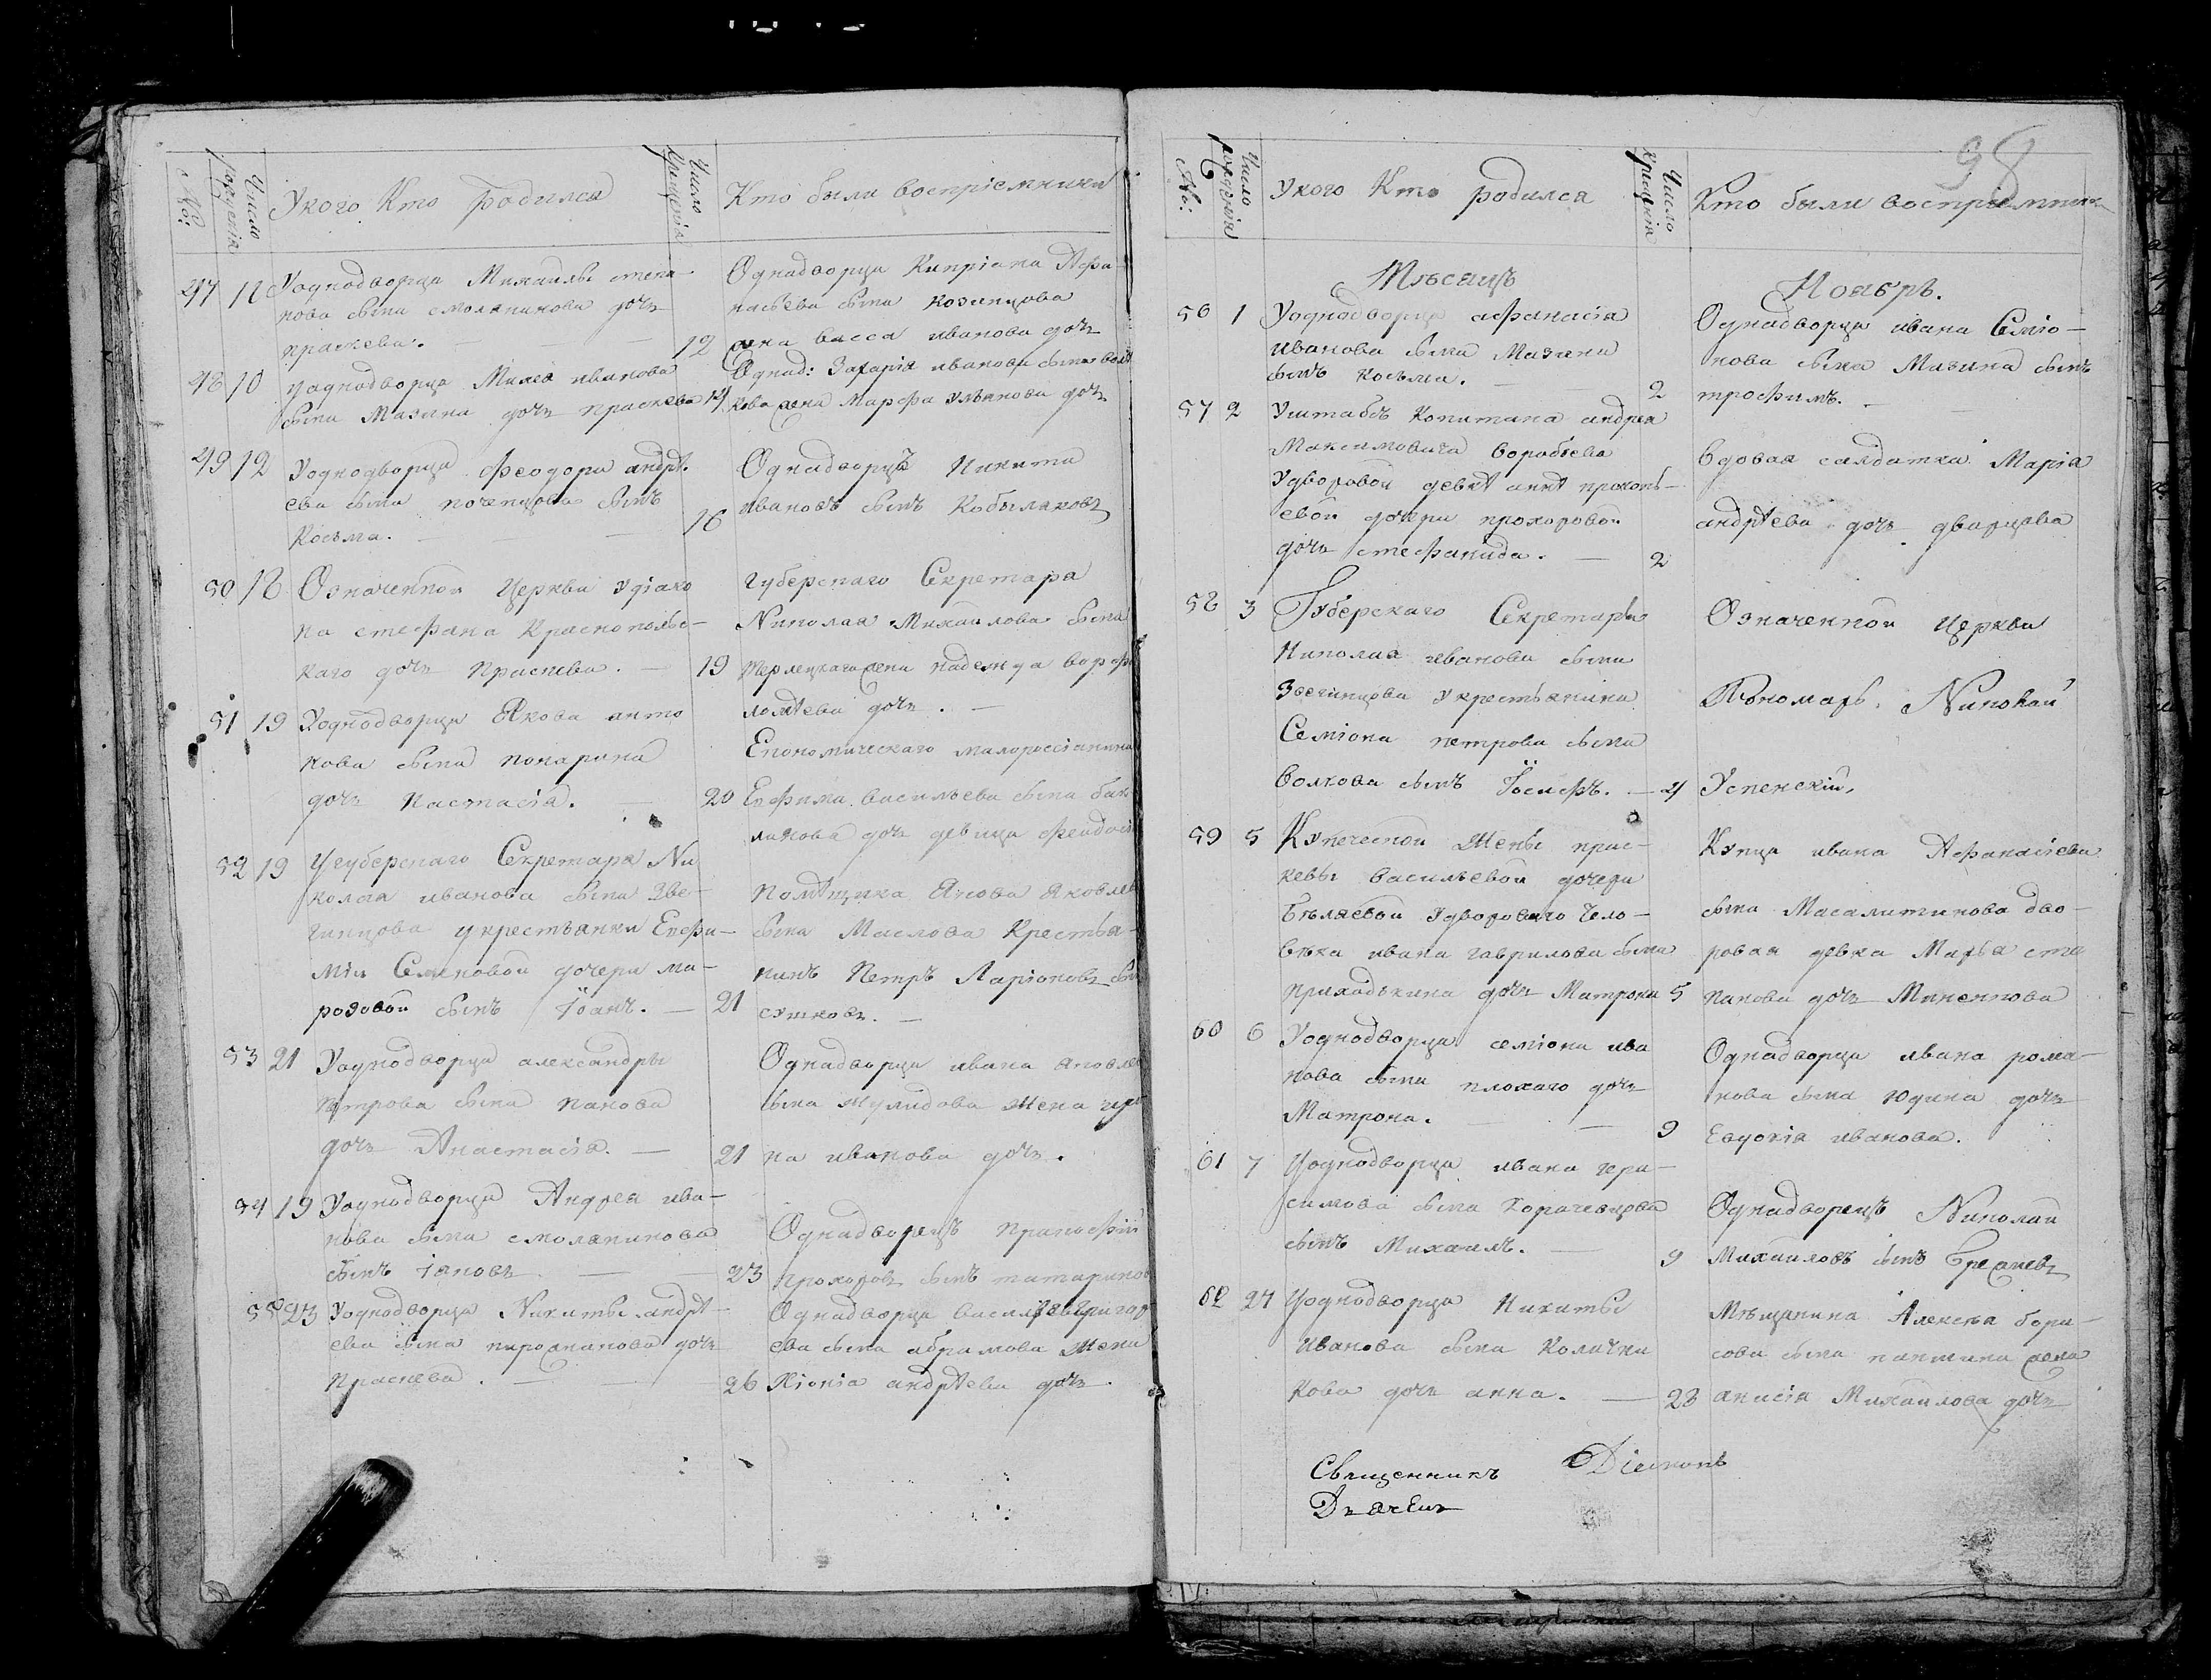 №:
Число рожденія
У кого Кто родился
Число крещенія
Кто были воспріемники
47 11 У однодворца Михаилы степа-
нова сына смолянинова дочь
праскева. — 12
Однадворца Кипріана Афа-
насьева сына козинцова
жена васса иванова дочь
48 10 у однодворца Михея иванова
сына Мазина дочь праскева 14
Однад: Захарія иванова сына вол-
кова жена Марфа ульянова дочь
49 12 У однодворца феодора андрѣ-
ева сына поченцова сынъ
Косьма. — 16
Однадворцъ Никита
ивановъ сынъ Кобыляковъ
50 18 Означенной Церкви у діако-
на стефана Краснопольс-
каго дочь праскева. — 19
губерскаго Секретара
Николая Михайлова сына
жена надежда варфо-
ломѣева дочь. —
51 19 У однодворца Якова анто
нова сына понарина
дочь Настасія. — 20
Економическаго малороссіанина
Евфима васильева сына
дочь девица феодосія
52 19 У губерскаго Секретара Ни
колая иванова сына Зве-
гинцова у крестьянки Евфи-
міи Семеновой дочери ма-
розовой сынъ Іоанъ. — 21
помѣщика Якова Яковлева
сына Маслова Крестья-
нинъ Петръ Ларіоновъ сынъ
сушковъ. —
53 21 У однодворца александры
петрова сына панова
дочь Анастасія. — 21
Однадворца ивана яковлева
сына жена ири
на иванова дочь.
54 19 У однодворца Андрея ива-
нова сына смолянинова
сынъ іяковъ — 23
Однадворецъ
прохоровъ сынъ татариновъ
55 23 У однодворца Никиты андрѣ-
ева сына дочь
праскева. — 26
Однадворца василія григорь
ева сына абрамова жена
Хіонія андрѣева дочь.
98
№:
Число рожденія
У кого Кто родился
Число крещенія
Кто были воспріемники
Мѣсяцъ Ноябрь.
56 1 У однодворца афанасія
иванова сына Мазина
сынъ косьма. — 2
Однадворца ивана Семіо-
нова сына Мазина сынъ
трофимъ. —
57 2 У штабсъ Копитана андрея
Максимовича воробьева
у дворовой девкѣ аннѣ прокопь-
евой дочери прохоровой
дочь стефанида. — 2
вдовая салдатка Марія
андрѣева дочь дварцова
58 3 Губерскаго Секретаря
Николая иванова сына
Звегинцова у крестьянина
Семіона петрова сына
волкова сынъ Іосифъ. — 4
Означенной Церкви
Пономарь Николай
Успенскій.
59 5 Купеческой жены прас-
кевы васильевой дочери
бѣляевой у двороваго чело-
вѣка ивана гаврилова сына
приходькина дочь Матрона 5
Купца ивана Афанасіева
сына Масалитинова дво-
ровая девка Марья сте
панова дочь Миненкова
60 6 У однодворца семіона ива
нова сына плохаго дочь
Матрона. — 9
Однадворца ивана рома-
нова сына юдина дочь
Евдокія иванова.
61 7 У однодворца ивана гера-
симова сына Корачевцова
сынъ Михаилъ. — 9
Однадворецъ Николай
Михаиловъ сынъ брежневъ
62 27 У однодворца Никиты
иванова сына Колични
кова дочь анна. — 28
Мѣщанина Алексѣя бори-
сова сына паншина жена
анисія Михайлова дочь
Священникъ Діаконъ
Дьячекъ